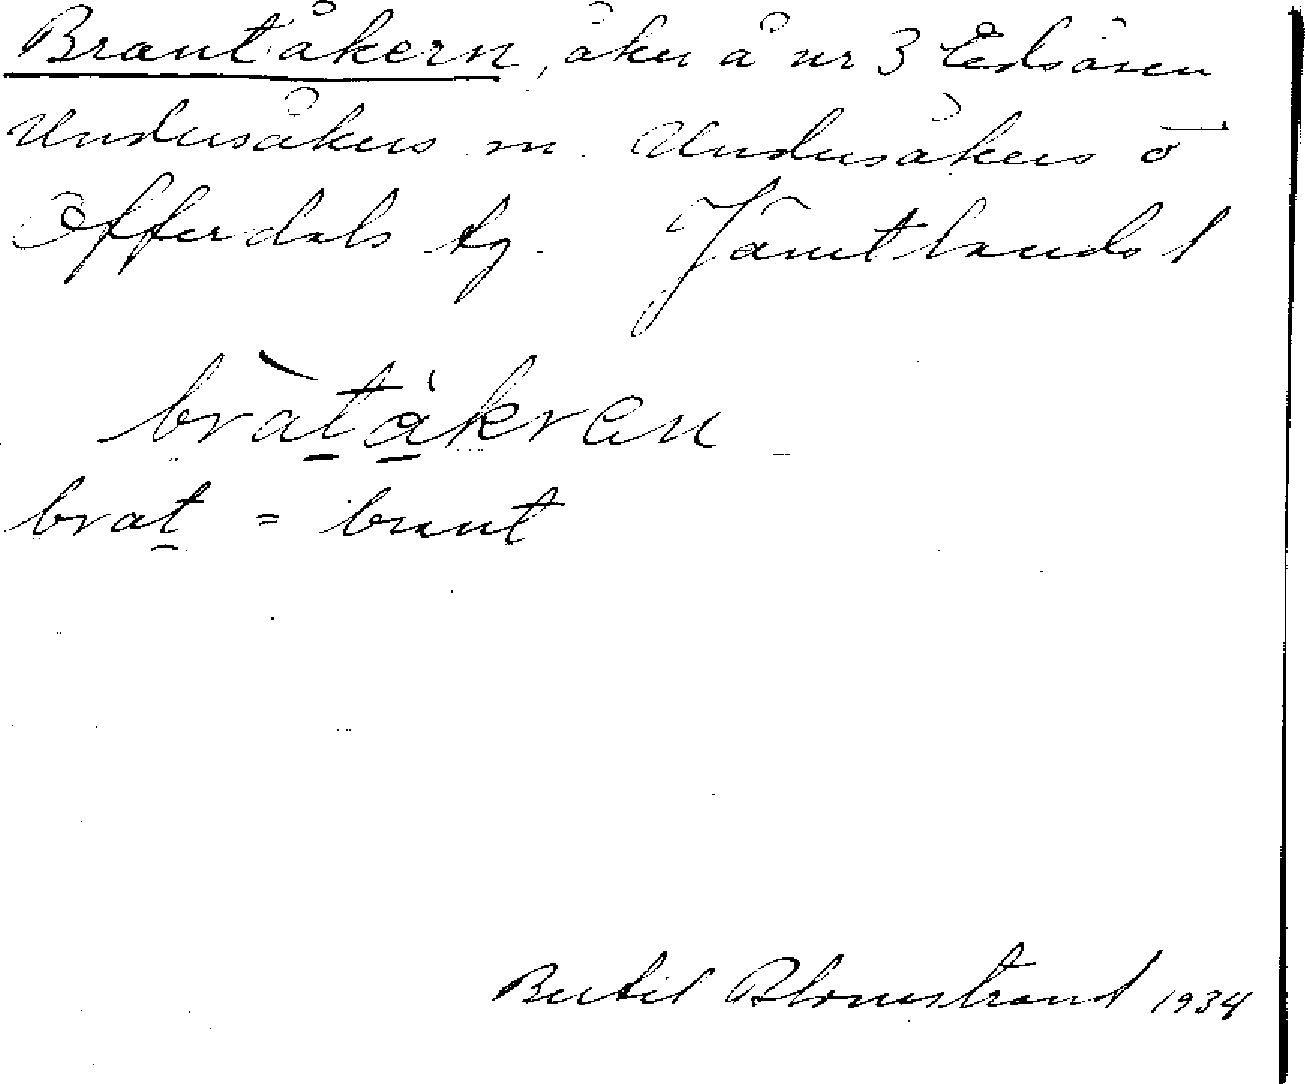 Brantåkern, åker å nr 3 Edsåsen
Undersåkers sn. Undersåkers o
Offerdals tg. Jämtlands l
bràtåkran
brat = brant
Bertil Blomstrand 1934